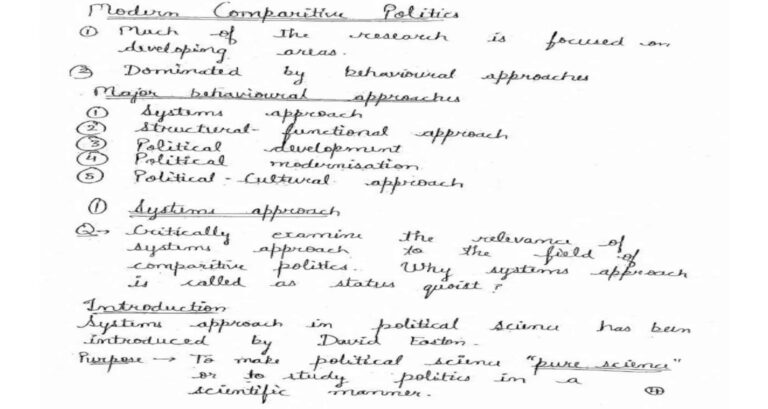 Modern Comparitive Politics
① Much of the research is focused on
developing areas.
③ Dominated by behavioural approaches
Major behavioural approaches
① Systems approach
② Structural-functional approach
③ Political development
④ Political modernisation
⑤ Political-Cultural approach
① Systems approach
Q→ Critically examine the relevance of
systems approach to the field of
comparitive politics. Why systems approach
is called as status quoist?
Introduction
Systems approach in political science has been
introduced by David Easton.
Purpose → To make political science "pure science"
or to study politics in a
scientific manner.